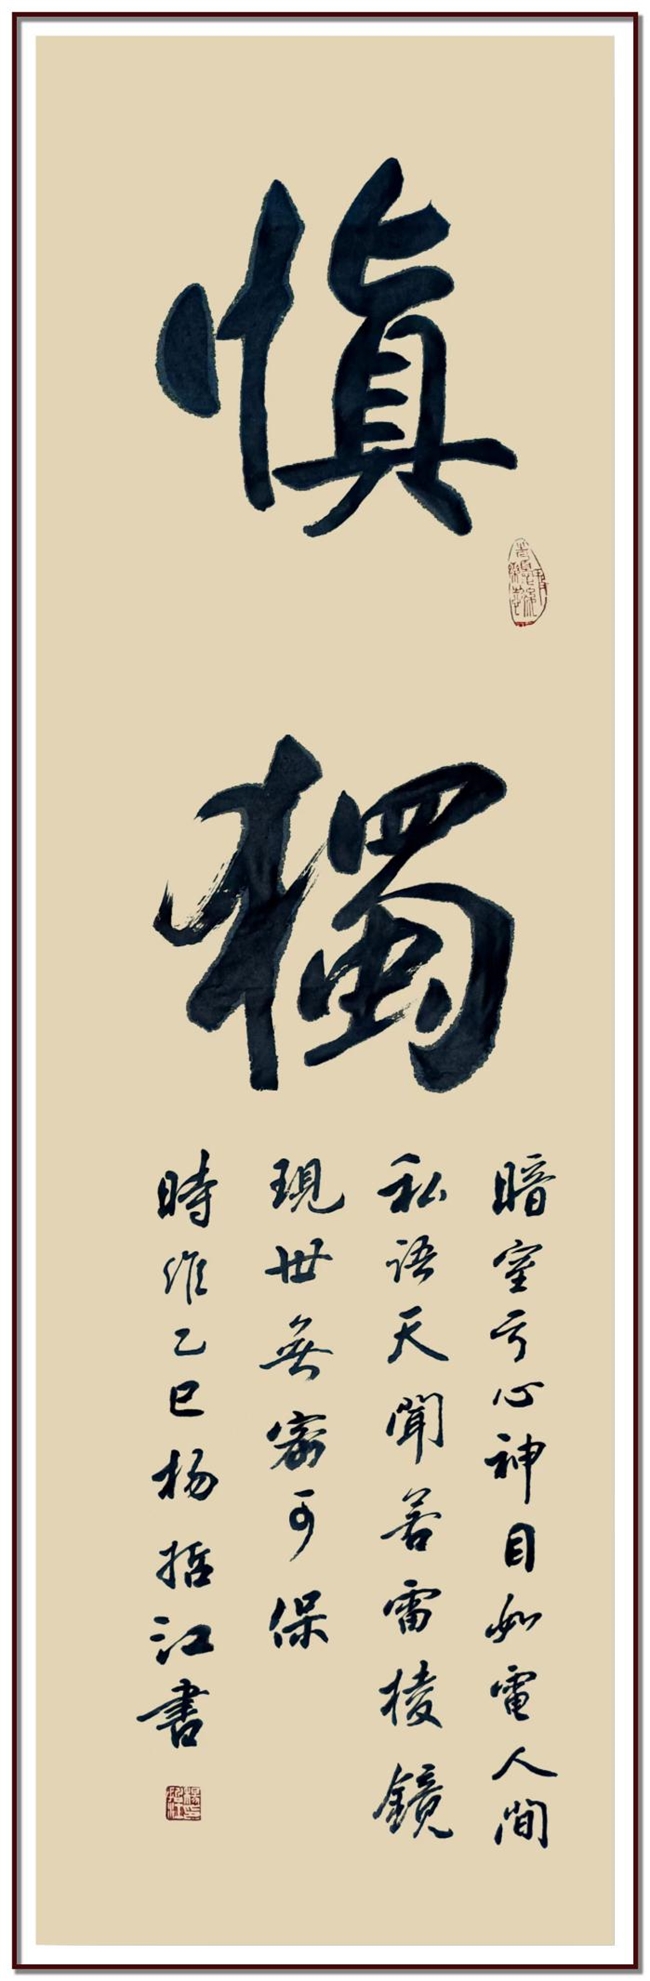 慎
獨
暗室亏心神目如電人間
私语天聞若雷棱鏡
現世無密可保
時维乙巳杨哲江書